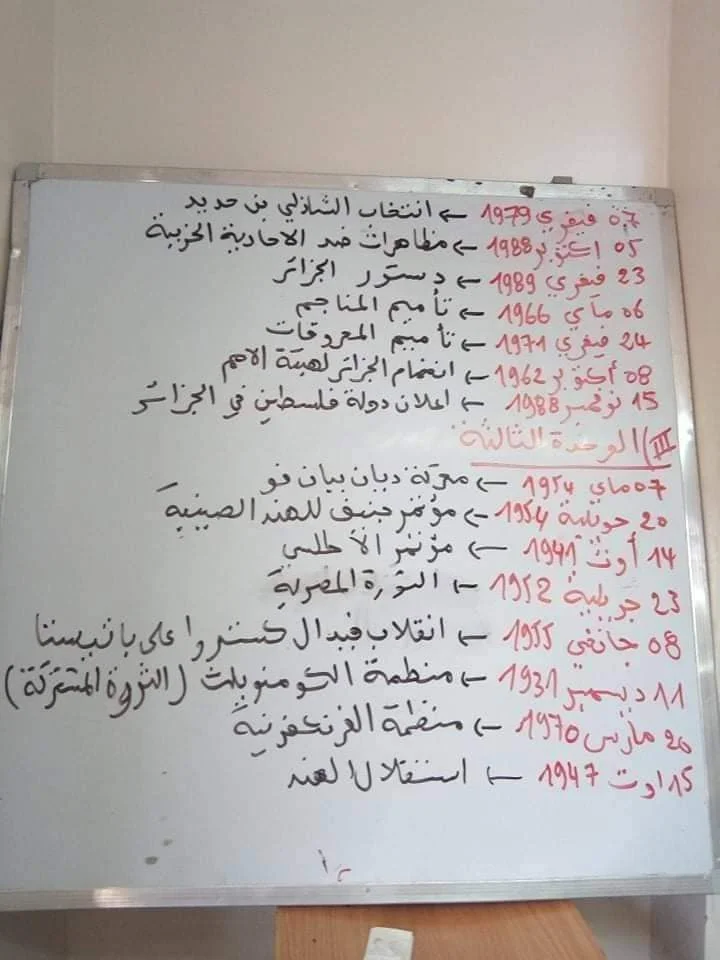 07 فيفري 1979 ← انتخاب الشاذلي بن حديد
05 اكتوبر 1988 ← مظاهرات ضد الاحادية الحزبية
23 فيفري 1989 ← دستور الجزائر
06 ماي 1966 ← تأميم المناجم
24 فيفري 1971 ← تأميم المحروقات
08 أكتوبر 1962 ← انضمام الجزائر لهيئة الامم
15 نوفمبر 1988 ← اعلان دولة فلسطين في الجزائر
III) الوحدة الثالثة
07 ماي 1954 ← معركة ديان بيان فو
20 جويلية 1954 ← مؤتمر جنيف للهند الصينية
14 أوت 1941 ← مؤتمر الأطلسي
23 جويلية 1952 ← الثورة المصرية
08 جانفي 1955 ← انقلاب فيدال كسترو على باتيستا
11 ديسمبر 1931 ← منظمة الكومنويلث (الثروة المشتركة)
20 مارس 1970 ← منظمة الفرنكفونية
15 اوت 1947 ← استقلال الهند